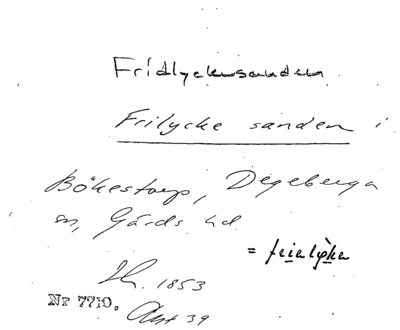 Fridlyckesanden
Frilycke sanden i
Bökestorp, Degeberga
sn, Gärds hd.
= frialyka
1853
Nr 7710. Akt 39